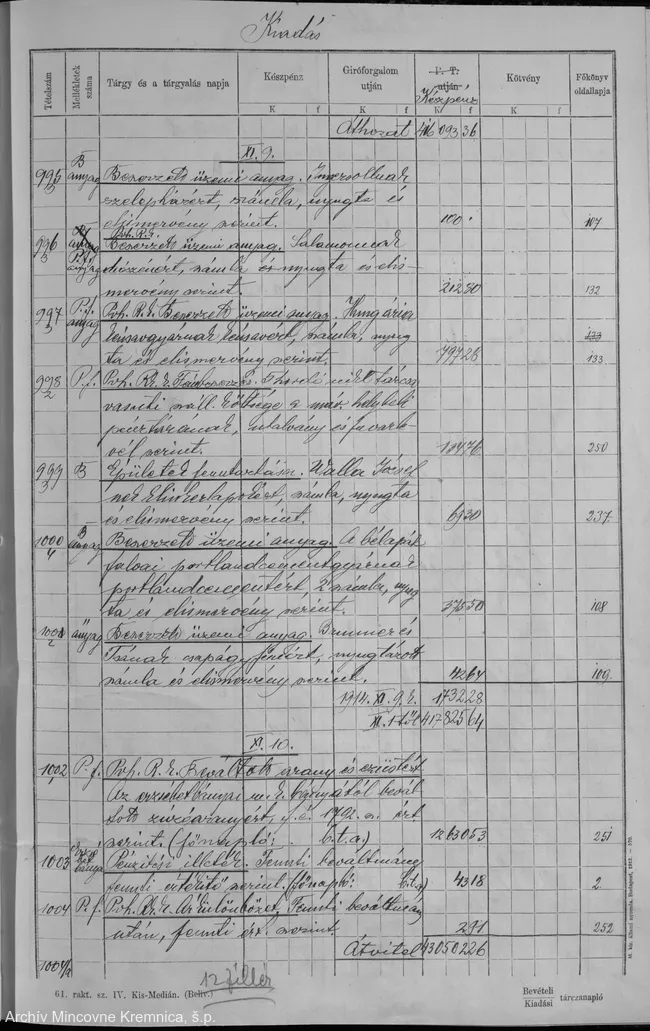 Kiadás
Tételszám Mellékletek száma Tárgy és a tárgyalás napja Készpénz Giróforgalom utján P. T. utján Kötvény Főkönyv oldallapja
Készpénz
K f K f K f K f
Áthozat 416093 36
XI. 9.
995/3 B anyag Beszerzett üzemi anyag. Ingersollnak
szelepházért, számla, nyugta és
elismervény szerint. 100 107
996/3 P. f. anyag Poh. R. E.
Beszerzett üzemi anyag. Salamonnak
kőszénért, számla és nyugta és elis-
mervény szerint. 212 80 132
997/3 P. f. anyag Poh. R. E. Beszerzett üzemi anyag. Hungária
kénsavgyárnak kénsavért, számla, nyug-
ta és elismervény szerint. 797 28 133 133
998/2 P. f.
vasuti száll. költsége a máv. helybeli
pénztárának, utalvány és fuvarle-
vél szerint. 104 76 250
999/3 B Épületek fenntartása. Walla József-
nek számla, nyugta
és elismervény szerint. 69 30 237
1000/4 B anyag Beszerzett üzemi anyag. A bélapát-
falvai portlandcementgyárnak
portlandcementért, 2 számla, nyug-
ta és elismervény szerint. 375 50 108
1001/2 " anyag Beszerzett üzemi anyag. Brunner és
Társának csapágyfémért, nyugtázott
számla és elismervény szerint. 42 64 109
1914. XI. 9. E. 1732 28
XI. 1től 417825 64
XI. 10.
1002/1 P. f. Poh. R. E. Beváltott arany és ezüstért
Az erzsébetbányai m. E. bányától bevál-
tott 1792. a. ért.
szerint. (főnapló: b.t.a.) 12630 53 251
1003 Erzsébetbánya Pénzverési illeték. Fennti beváltmány
fennti értesítő szerint. (főnapló: b.t.a) 43 18 2
1004 P. f. Poh. R. E. Árkülönbözet, Fennti beváltmány
után, fennti ért. szerint. 2 91 252
Átvitel 430502 26
1004/2
12 fillér
61. rakt. sz. IV. Kis-Medián. (Beliv.)
Bevételi
Kiadási tárczanapló
M. kir. állami nyomda. Budapest, 1912.
Archív Mincovne Kremnica, š.p.